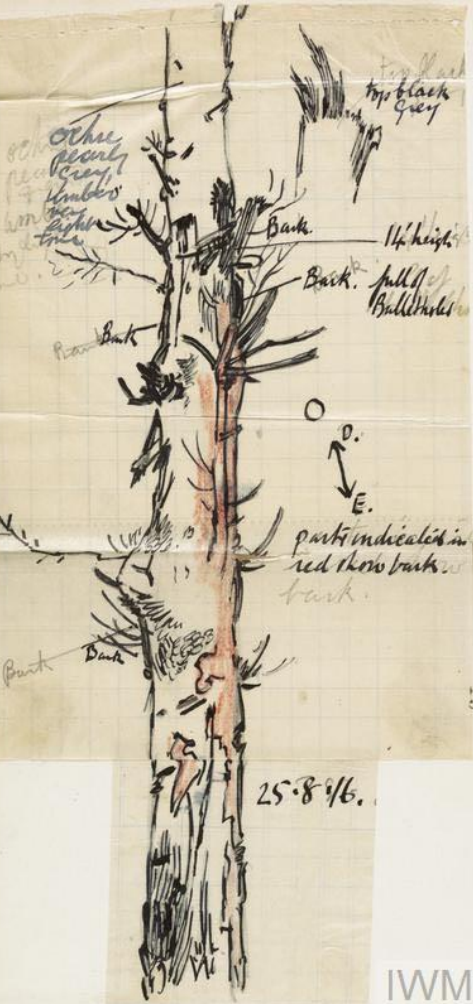 top black
grey
ochre
pearly
grey
umber
very
light
tone
Bark.
14' heigh
Bark.
full of
Bulletholes
Bark
O
D.
E.
parts indicated in
red show bark.
bark.
Bark
Bark
25·8·16.
IWM